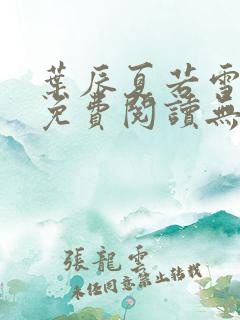 葉辰夏若雪
免費閱讀無
張龍雲
未經同意禁止轉載